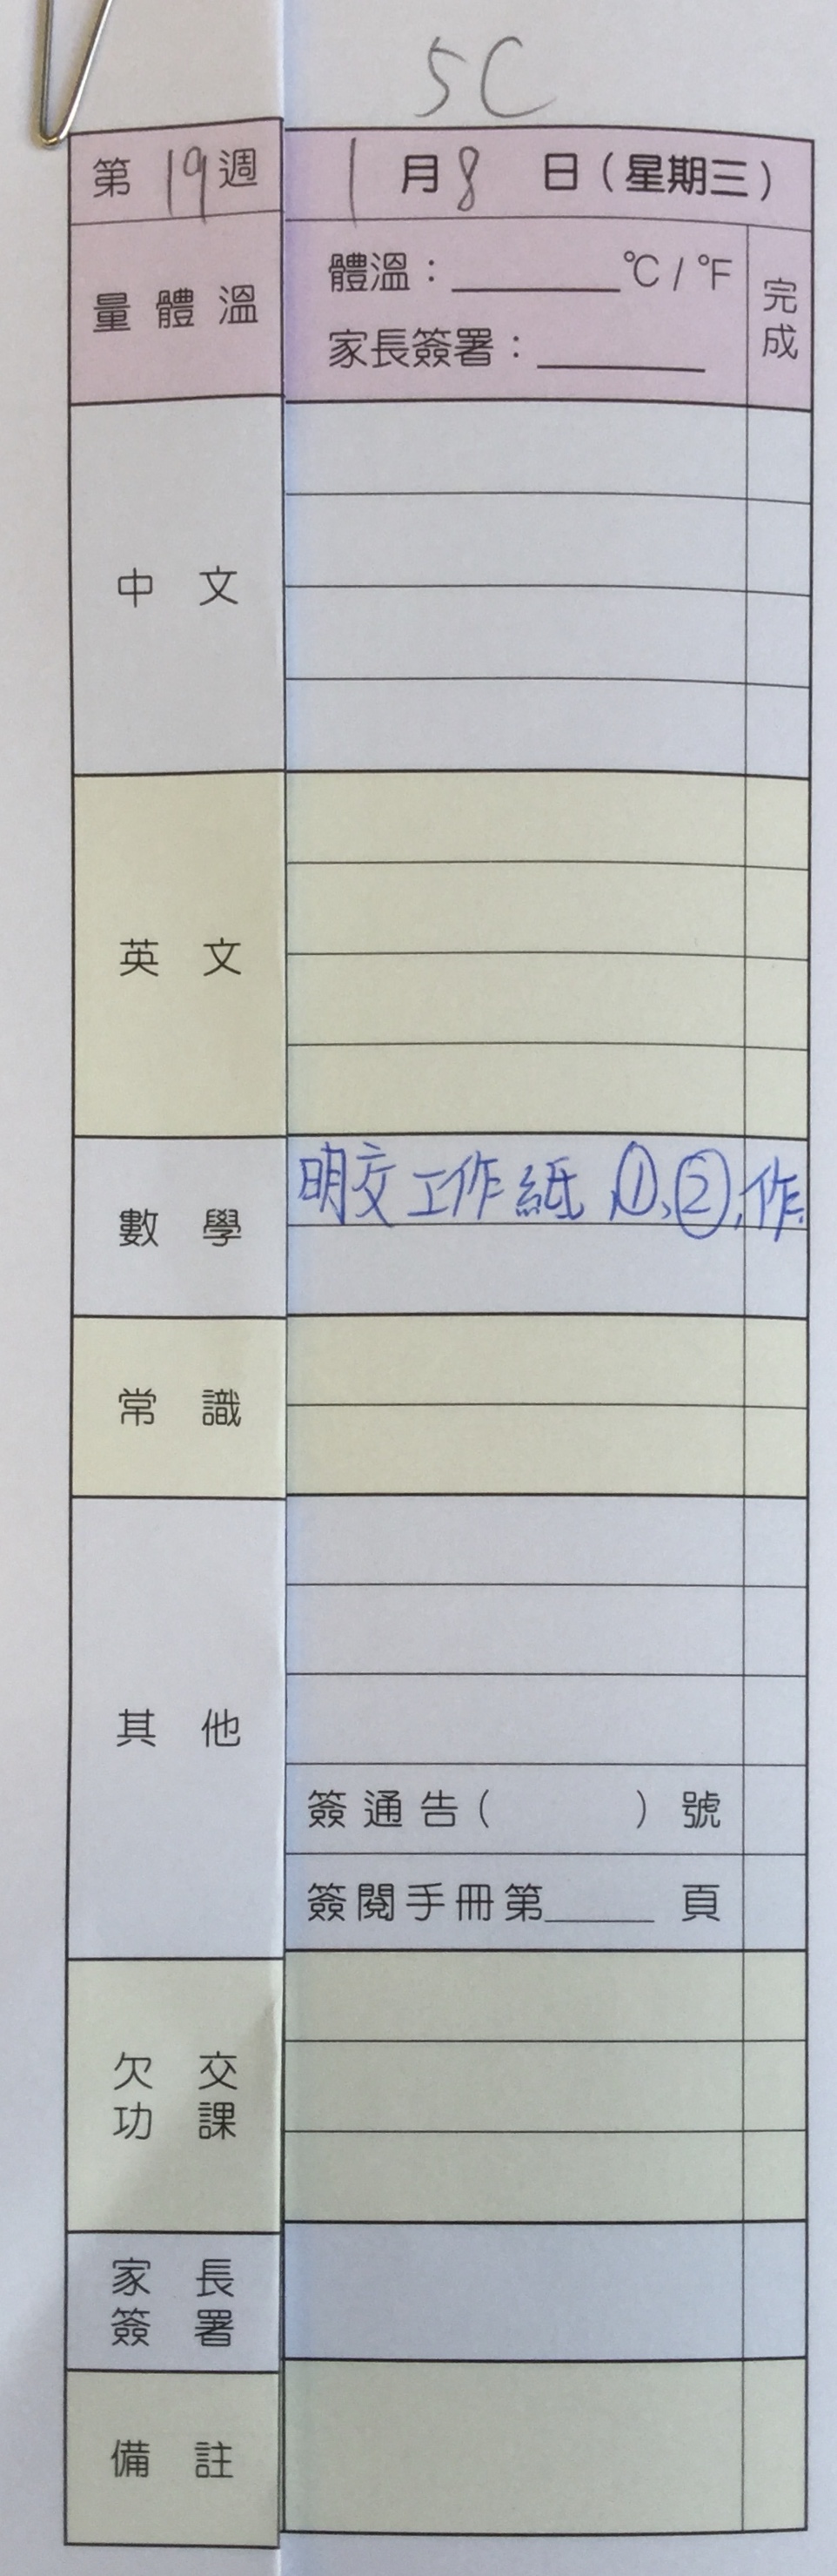 5C
第19週 1月8日(星期三)
量體溫
體溫:______°C / °F
家長簽署:______
完成
中文
英文
數學
明交工作紙①、②,作.
常識
其他
簽通告( )號
簽閱手冊第____頁
欠交功課
家長簽署
備註